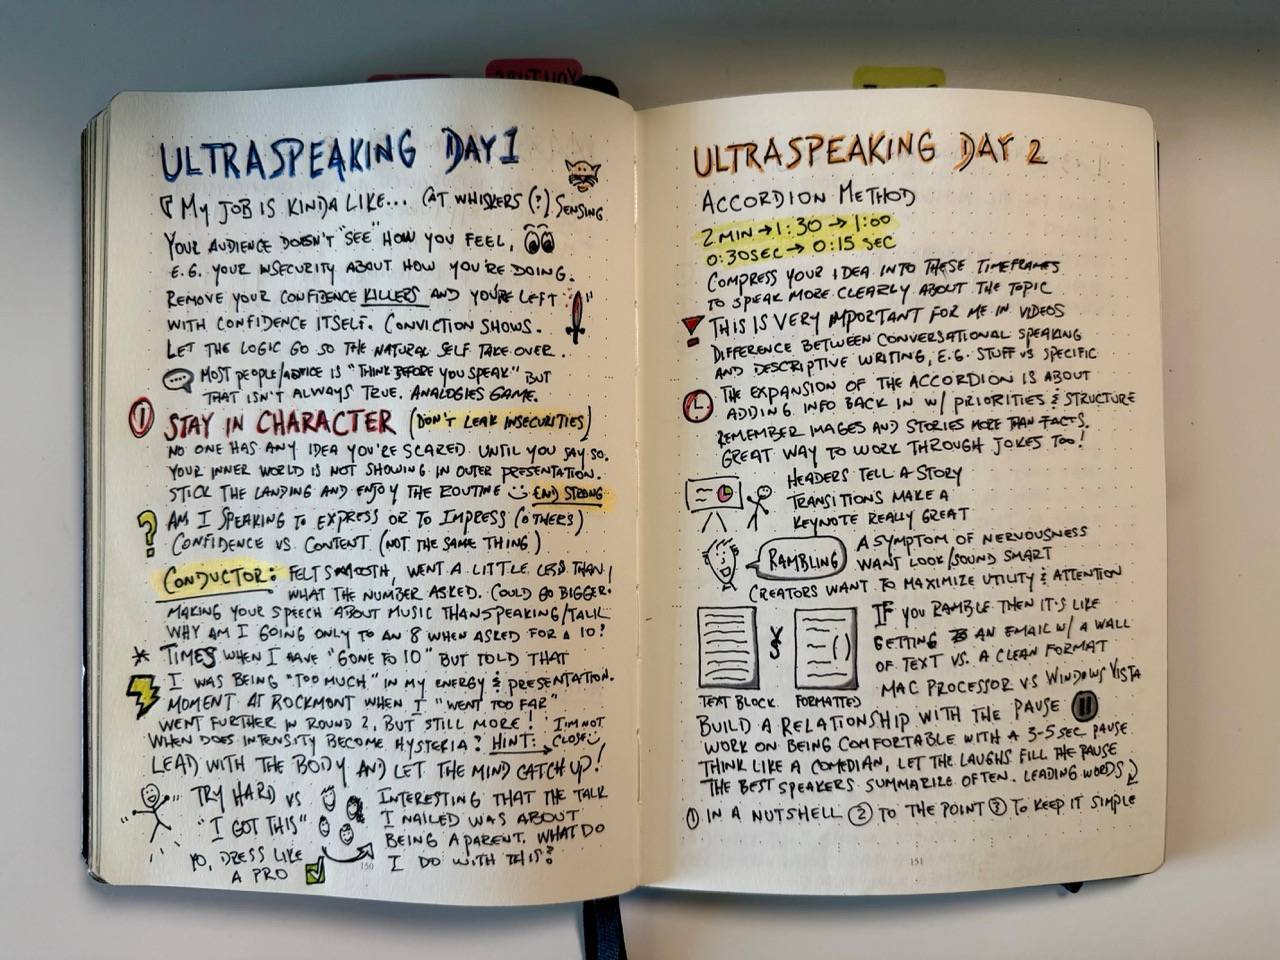 ULTRASPEAKING DAY 1
"MY JOB IS KINDA LIKE... CAT WHISKERS (?) SENSING
YOUR AUDIENCE DOESN'T "SEE" HOW YOU FEEL,
E.G. YOUR INSECURITY ABOUT HOW YOU'RE DOING.
REMOVE YOUR CONFIDENCE KILLERS AND YOU'RE LEFT
WITH CONFIDENCE ITSELF. CONVICTION SHOWS.
LET THE LOGIC GO SO THE NATURAL SELF TAKE OVER.
MOST PEOPLE/ADVICE IS "THINK BEFORE YOU SPEAK" BUT
THAT ISN'T ALWAYS TRUE. ANALOGIES GAME.
STAY IN CHARACTER (DON'T LEAK INSECURITIES)
NO ONE HAS ANY IDEA YOU'RE SCARED UNTIL YOU SAY SO.
YOUR INNER WORLD IS NOT SHOWING IN OUTER PRESENTATION.
STICK THE LANDING AND ENJOY THE ROUTINE END STRONG
? AM I SPEAKING TO EXPRESS OR TO IMPRESS (OTHERS)
CONFIDENCE VS. CONTENT (NOT THE SAME THING)
CONDUCTOR: FELT SMOOTH, WENT A LITTLE LESS THAN
WHAT THE NUMBER ASKED. COULD GO BIGGER!
MAKING YOUR SPEECH ABOUT MUSIC THAN SPEAKING/TALK
WHY AM I GOING ONLY TO AN 8 WHEN ASKED FOR A 10?
* TIMES WHEN I HAVE "GONE TO 10" BUT TOLD THAT
I WAS BEING "TOO MUCH" IN MY ENERGY & PRESENTATION.
MOMENT AT ROCKMONT WHEN I "WENT TOO FAR"
WENT FURTHER IN ROUND 2, BUT STILL MORE!
WHEN DOES INTENSITY BECOME HYSTERIA? HINT: I'M NOT CLOSE
LEAD WITH THE BODY AND LET THE MIND CATCH UP!
TRY HARD VS
"I GOT THIS"
YO, DRESS LIKE
A PRO
INTERESTING THAT THE TALK
I NAILED WAS ABOUT
BEING A PARENT. WHAT DO
I DO WITH THIS?
150
ULTRASPEAKING DAY 2
ACCORDION METHOD
2 MIN → 1:30 → 1:00
0:30 SEC → 0:15 SEC
COMPRESS YOUR IDEA INTO THESE TIMEFRAMES
TO SPEAK MORE CLEARLY ABOUT THE TOPIC
THIS IS VERY IMPORTANT FOR ME IN VIDEOS
DIFFERENCE BETWEEN CONVERSATIONAL SPEAKING
AND DESCRIPTIVE WRITING, E.G. STUFF VS SPECIFIC
THE EXPANSION OF THE ACCORDION IS ABOUT
ADDING INFO BACK IN W/ PRIORITIES & STRUCTURE
REMEMBER IMAGES AND STORIES MORE THAN FACTS.
GREAT WAY TO WORK THROUGH JOKES TOO!
HEADERS TELL A STORY
TRANSITIONS MAKE A
KEYNOTE REALLY GREAT
RAMBLING
A SYMPTOM OF NERVOUSNESS
WANT LOOK/SOUND SMART
CREATORS WANT TO MAXIMIZE UTILITY & ATTENTION
VS
TEXT BLOCK FORMATTED
IF YOU RAMBLE THEN IT'S LIKE
GETTING AN EMAIL W/ A WALL
OF TEXT VS. A CLEAN FORMAT
MAC PROCESSOR VS WINDOWS VISTA
BUILD A RELATIONSHIP WITH THE PAUSE
WORK ON BEING COMFORTABLE WITH A 3-5 SEC PAUSE
THINK LIKE A COMEDIAN, LET THE LAUGHS FILL THE PAUSE
THE BEST SPEAKERS SUMMARIZE OFTEN. LEADING WORDS
① IN A NUTSHELL ② TO THE POINT ③ TO KEEP IT SIMPLE
151